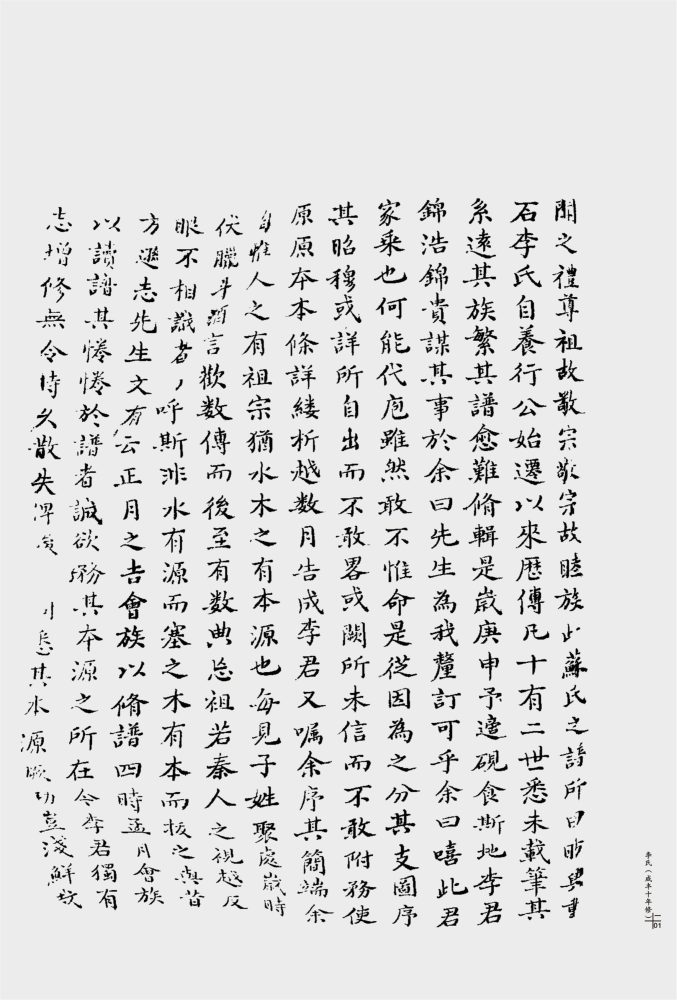 聞之禮尊祖故敬宗敬宗故睦族此蘇氏之譜所由昉與重
石李氏自養行公始遷以來歷傳凡十有二世悉未載筆其
系遠其族繁其譜愈難脩輯是歲庚申予適硯食斯地李君
錦浩錦貴謀其事於余曰先生為我釐訂可乎余曰嘻此君
家乘也何能代庖雖然敢不惟命是從因為之分其支圖序
其昭穆或詳所自出而不敢畧或闕所未信而不敢附務使
原原夲本條詳縷析越数月告成李君又嘱余序其簡端余
自惟人之有祖宗猶水木之有本源也每見子姓聚處歲時
伏臘斗酒言歡数傳而後至有数典忘祖若秦人之視越反
眼不相識者吁斯非水有源而塞之木有本而拔之與昔
方遜志先生文有云正月之吉會族以脩譜四時孟月會族
以讀譜其惓惓於譜者誠欲務其夲源之所在今李君獨有
志增修無令時久散失俾後 其本源厥功豈淺鮮哉
李氏（咸丰十年修）
二
01